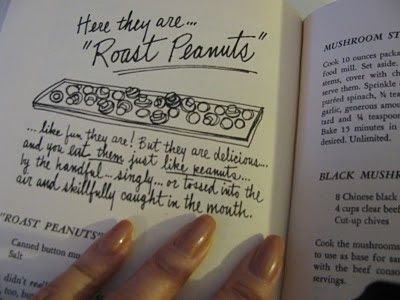 Here they are...
"Roast Peanuts"
... like fun they are! But they are delicious...
and you eat them just like peanuts...
by the handful... singly... or tossed into the
air and skillfully caught in the mouth.
"ROAST PEANUTS"
Canned button mu
Salt
didn't
too, bu
MUSHROOM ST
Cook 10 ounces packa
food mill. Set aside.
stems, cover with ch
serve them. Sprinkle
puréed spinach, ¾ te
garlic, generous amou
tard and ¼ teaspoon
Bake 15 minutes in
desired. Unlimited.
BLACK MUSH
8 Chinese black
4 cups clear beef
Cut-up chives
Cook the mushrooms
to use as base for sa
with the beef conso
servings.